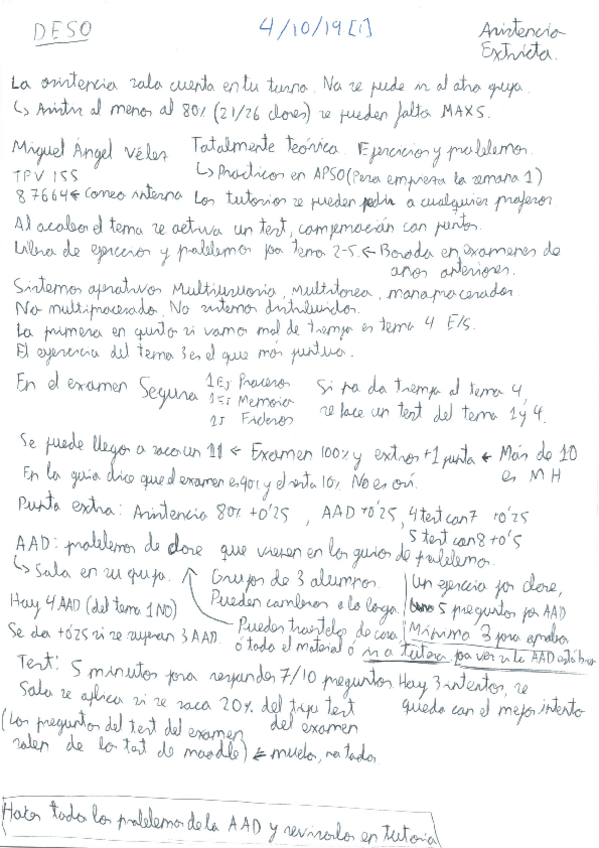 DESO
4/10/19 [1]
Asistencia
Extricta.
La asistencia solo cuenta en tu turno. No se puede ir al otro grupo.
↳ Asistir al menos al 80% (21/26 clases) se pueden faltar MAX 5.
Miguel Ángel Vélez Totalmente teórica. Ejercicios y problemas.
TPV 155 ↳ Practicos en APSO (Pero empreza la semana 1)
87664 ← Correo interno Los tutorios se pueden pedir a cualquier profesor
Al acabar el tema se activa un test, compensación con puntos.
Libro de ejercicios y problemas por tema 2-5. ← Basado en examenes de
años anteriores.
Sistemas operativos Multiusuario, Multitarea, monoprocesador.
No multiprocesador. No sistemas distribuidos.
Lo primero en quitar si vamos mal de tiempo es tema 4 E/S.
El ejercicio del tema 3 es el que más puntua.
En el examen Seguro 1Ej Procesos
1Ej Memoria
1Ej Ficheros
Si no da tiempo al tema 4,
se hace un test del tema 1 y 4.
Se puede llegar a sacar un 11 ← Examen 100% y extras +1 punto ← Más de 10
es MH
En la guia dice que el examen es 90% y el resto 10%. No es así.
Punto extra: Asistencia 80% +0'25, AAD +0'25, 4 test con 7 +0'25
5 test con 8 +0'5
AAD: problemas de clase que vienen en los guios de problemas.
↳ Solo en su grupo. Grupos de 3 alumnos. Un ejercicio por clase,
Pueden cambiarse a lo largo.
Hay 4 AAD (del tema 1 NO) 5 preguntas por AAD
Pueden traerselos de casa Mínimo 3 para aprobar
Se da +0'25 si se superan 3 AAD. ó todo el material ó ir a tutoria para ver si la AAD está bien
Test: 5 minutos para responder 7/10 preguntas. Hay 3 intentos, se
queda con el mejor intento
Solo se aplica si se saca 20% del tipo test
del examen
(Los preguntas del test del examen
salen de los test de moodle) ← muchos, no todos.
Hacer todos los problemas de la AAD y revisarlos en tutoria